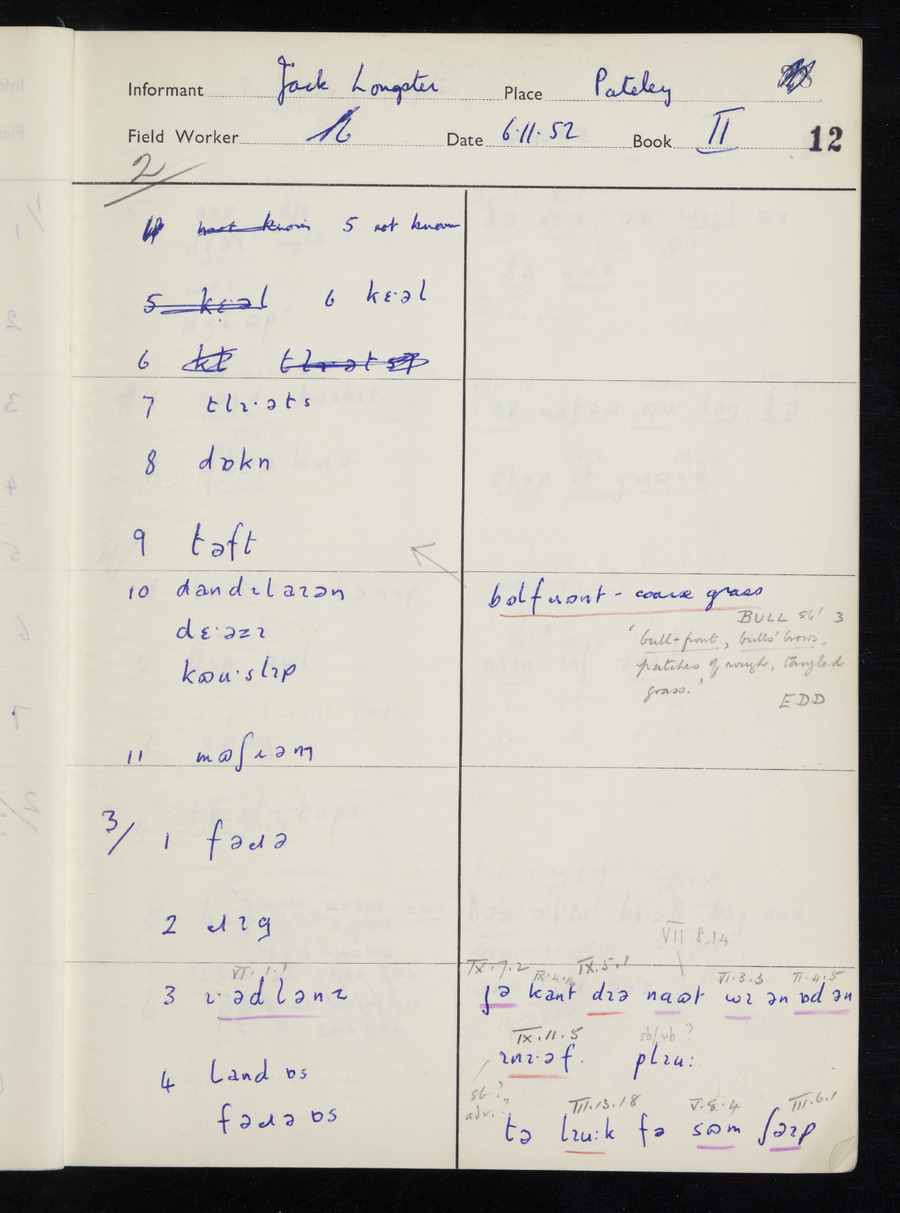 Informant Jack Longster Place Pateley
Field Worker Date 6.11.52 Book II 12
2
4 not known 5 not known
5 kɛ·əl 6 kɛ·əl
6
7 tlɪ·əts
8 dɒkn
9 təft
10 dandɪlaɪən
dɛ·əzɪ
kaʊ·slɪp
11
3/ 1 fəɹə
2 ɹɪg
VI.1.1
3 ɪ·ədlənz
4 land ɒs
fəɹə ɒs
- coarse grass
BULL sb' 3
'bull-front, bulls' brows,
patches of rough, tangled
grass.'
EDD
VII.8.14
IX.7.2 IX.4.4 IX.5.1 VI.3.3 II.4.5
jə kant dɪə naʊt wɪ ən ɒd ən
IX.11.5 sb/vb ?
ɪnɪ·əf. plɪu:
sb ?
adv. ?
III.13.18 V.8.4 III.6.1
tə lɪu:k fə sʊm ʃəɪp